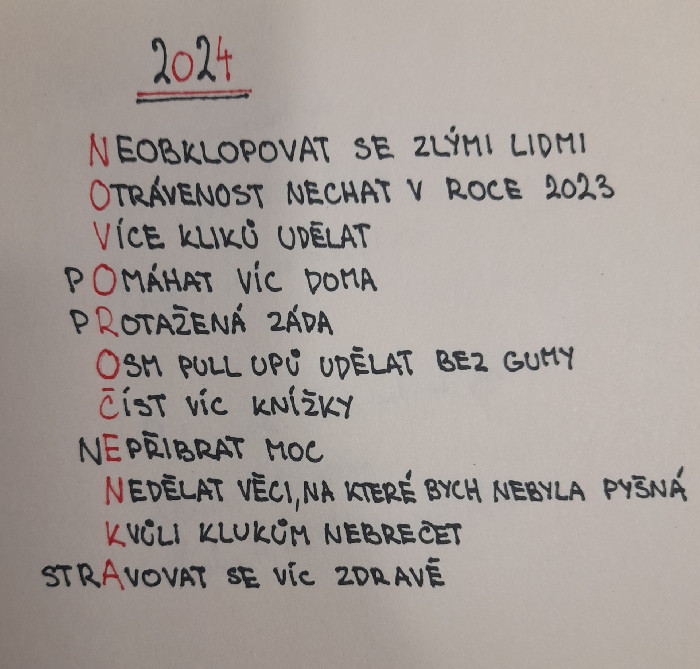 2024
NEOBKLOPOVAT SE ZLÝMI LIDMI
OTRÁVENOST NECHAT V ROCE 2023
VÍCE KLIKŮ UDĚLAT
POMÁHAT VÍC DOMA
PROTAŽENÁ ZÁDA
OSM PULL UPŮ UDĚLAT BEZ GUMY
ČÍST VÍC KNÍŽKY
NEPŘIBRAT MOC
NEDĚLAT VĚCI, NA KTERÉ BYCH NEBYLA PYŠNÁ
KVŮLI KLUKŮM NEBREČET
STRAVOVAT SE VÍC ZDRAVĚ